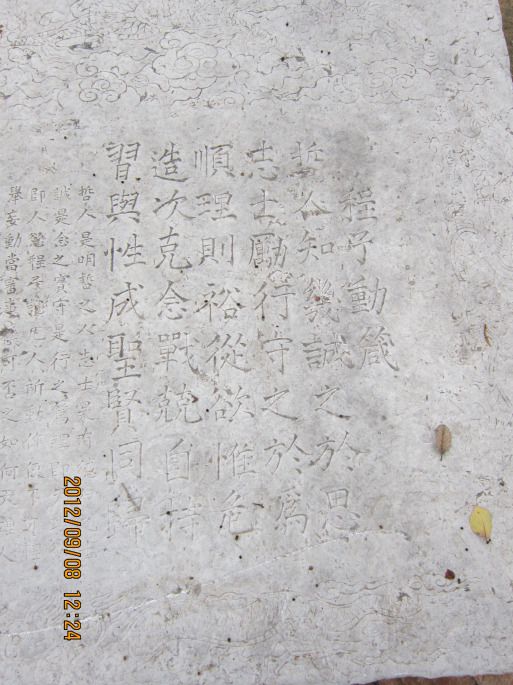 程子動箴
哲人知幾誠之於思
志士勵行守之於為
順理則裕從欲惟危
造次克念戰兢自持
習與性成聖賢同歸
哲人是明哲之人志士是有志
誠是念之實守是行之篤理即
即人程子說人所動作
舉妄動當審事可否之如何
2012/09/08 12:24